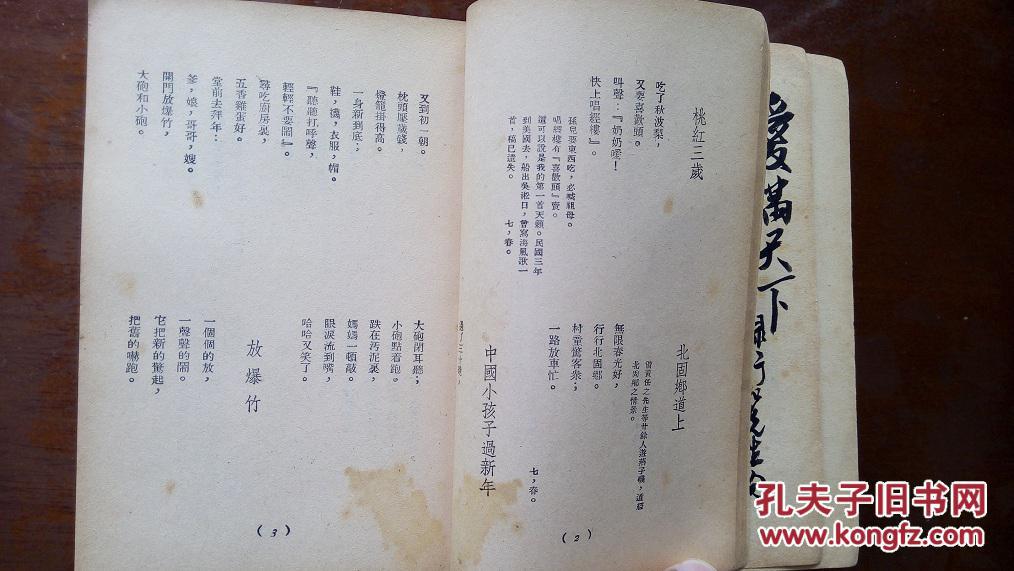 愛滿天下
桃紅三歲
吃了秋波梨，
又要喜歡頭。
叫聲：『奶奶噻！
快上唱經樓』。
孫兒要東西吃，必喊祖母。
唱經樓有『喜歡頭』賣。
這可以說是我的第一首天籟。民國三年
到美國去，船出吳淞口，曾寫海風歌一
首，稿已遺失。
七，春。
北固鄉道上
偕黃任之先生等廿餘人遊燕子磯，道經
北固鄉之情景。
無限春光好，
行行北固鄉。
村童驚客衆；
一路放車忙。
七，春。
中國小孩子過新年
(2)
又到初一朝。
枕頭壓歲錢，
燈籠掛得高。
一身新到底；
鞋，襪，衣服，帽。
『聽聽打呼聲，
輕輕不要鬧』。
尋吃廚房裏，
五香雞蛋好。
堂前去拜年：
爹，娘，哥哥，嫂。
開門放爆竹，
大砲和小砲。
大砲閉耳聽；
小砲點着跑。
跌在汚泥裏，
媽媽一頓敲。
眼淚流到嘴，
哈哈又笑了。
放爆竹
一個個的放，
一聲聲的鬧。
它把新的驚起，
把舊的嚇跑。
(3)
孔夫子旧书网
www.kongfz.com